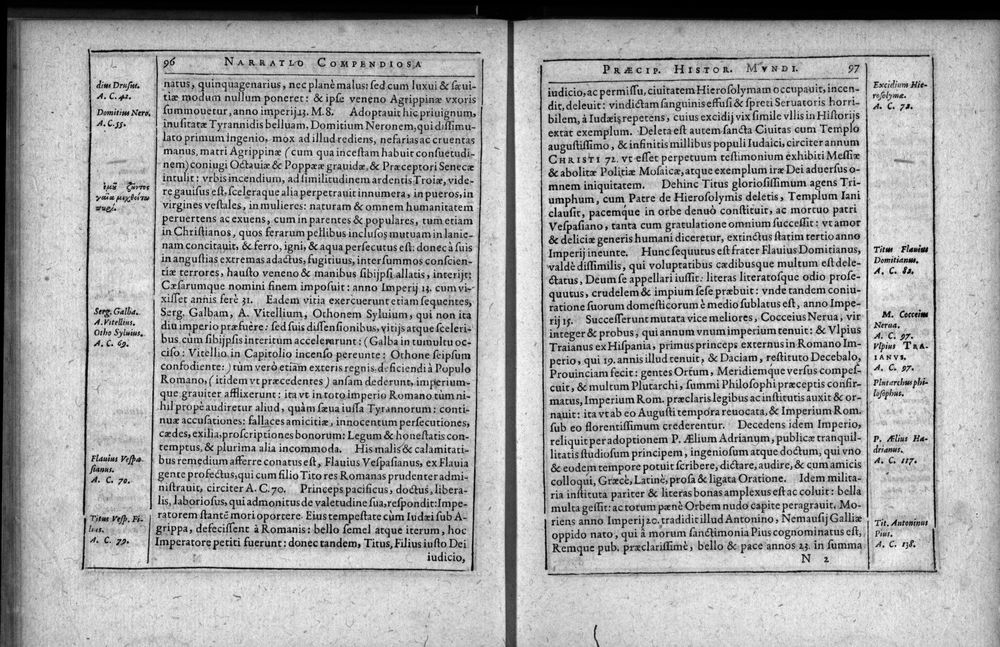 96 NARRATIO COMPENDIOSA
dius Drusus.
A. C. 42.
Domitius Nero.
A. C. 55.
ἐμοῦ ζῶντος
γαῖα μιχθείτω
πυρί.
Serg. Galba.
A. Vitellius.
Otho Syluius.
A. C. 69.
Flauius Vespa-
sianus.
A. C. 70.
Titus Vesp. Fi-
lius.
A. C. 79.
natus, quinquagenarius, nec planè malus: sed cum luxui & sæui-
tiæ modum nullum poneret: & ipse veneno Agrippinæ vxoris
summouetur, anno imperij 13. M. 8. Adoptauit hic priuignum,
inusitatæ Tyrannidis belluam, Domitium Neronem, qui dissimu-
lato primum ingenio, mox ad illud rediens, nefarias ac cruentas
manus, matri Agrippinæ (cum qua incestam habuit consuetudi-
nem) coniugi Octauiæ & Poppææ grauidæ, & Præceptori Senecæ
intulit: vrbis incendium, ad similitudinem ardentis Troiæ, vide-
re gauisus est, sceleraque alia perpetrauit innumera, in pueros, in
virgines vestales, in mulieres: naturam & omnem humanitatem
peruertens ac exuens, cum in parentes & populares, tum etiam
in Christianos, quos ferarum pellibus inclusos mutuam in lanie-
nam concitauit, & ferro, igni, & aqua persecutus est: donec à suis
in angustias extremas adactus, fugitiuus, inter summos conscien-
tiæ terrores, hausto veneno & manibus sibijpsi allatis, interijt:
Cæsarumque nomini finem imposuit: anno Imperij 13. cum vi-
xisset annis ferè 31. Eadem vitia exercuerunt etiam sequentes,
Serg. Galbam, A. Vitellium, Othonem Syluium, qui non ita
diu imperio præfuere: sed suis dissensionibus, vitijs atque sceleri-
bus cum sibijpsis interitum accelerarunt: (Galba in tumultu oc-
ciso: Vitellio in Capitolio incenso pereunte: Othone seipsum
confodiente:) tùm verò etiam exteris regnis deficiendi à Populo
Romano, (itidem vt præcedentes) ansam dederunt, imperium-
que grauiter afflixerunt: ita vt in toto imperio Romano tùm ni-
hil propè audiretur aliud, quàm sæua iussa Tyrannorum: conti-
nuæ accusationes: fallaces amicitiæ, innocentum persecutiones,
cædes, exilia, proscriptiones bonorum: Legum & honestatis con-
temptus, & plurima alia incommoda. His malis & calamitati-
bus remedium afferre conatus est, Flauius Vespasianus, ex Flauia
gente profectus, qui cum filio Tito res Romanas prudenter admi-
nistrauit, circiter A. C. 70. Princeps pacificus, doctus, libera-
lis, laboriosus, qui admonitus de valetudine sua, respondit: Impe-
ratorem stantē mori oportere. Eius tempestate cùm Iudæi sub A-
grippa, defecissent à Romanis: bello semel atque iterum, hoc
Imperatore petiti fuerunt: donec tandem, Titus, Filius iusto Dei
iudicio,
PRÆCIP. HISTOR. MVNDI. 97
iudicio, ac permissu, ciuitatem Hierosolymam occupauit, incen-
dit, deleuit: vindictam sanguinis effusi & spreti Seruatoris horri-
bilem, à Iudæis repetens, cuius excidij vix simile vllis in Historijs
extat exemplum. Deleta est autem sancta Ciuitas cum Templo
augustissimo, & infinitis millibus populi Iudaici, circiter annum
CHRISTI 72. vt esset perpetuum testimonium exhibiti Messiæ
& abolitæ Politiæ Mosaicæ, atque exemplum iræ Dei aduersus o-
mnem iniquitatem. Dehinc Titus gloriosissimum agens Tri-
umphum, cum Patre de Hierosolymis deletis, Templum Iani
clausit, pacemque in orbe denuò constituit, ac mortuo patri
Vespasiano, tanta cum gratulatione omnium successit: vt amor
& deliciæ generis humani diceretur, extinctus statim tertio anno
Imperij ineunte. Hunc sequutus est frater Flauius Domitianus,
valdè dissimilis, qui voluptatibus cædibusque multum est dele-
ctatus, Deum se appellari iussit: literas literatosque odio prose-
quutus, crudelem & impium sese præbuit: vnde tandem coniu-
ratione suorum domesticorum è medio sublatus est, anno Impe-
rij 15. Successerunt mutata vice meliores, Cocceius Nerua, vir
integer & probus, qui annum vnum imperium tenuit: & Vlpius
Traianus ex Hispania, primus princeps externus in Romano Im-
perio, qui 19. annis illud tenuit, & Daciam, restituto Decebalo,
Prouinciam fecit: gentes Ortum, Meridiemque versus compes-
cuit, & multum Plutarchi, summi Philosophi præceptis confir-
matus, Imperium Rom. præclaris legibus ac institutis auxit & or-
nauit: ita vt ab eo Augusti tempora reuocata, & Imperium Rom.
sub eo florentissimum crederentur. Decedens idem Imperio,
reliquit per adoptionem P. Ælium Adrianum, publicæ tranquil-
litatis studiosum principem, ingeniosum atque doctum, qui vno
& eodem tempore potuit scribere, dictare, audire, & cum amicis
colloqui, Græcè, Latinè, prosa & ligata Oratione. Idem milita-
ria instituta pariter & literas bonas amplexus est ac coluit: bella
multa gessit: ac totum pænè Orbem nudo capite peragrauit. Mo-
riens anno Imperij 20. tradidit illud Antonino, Nemausij Galliæ
oppido nato, qui à morum sanctimonia Pius cognominatus est,
Remque pub. præclarissimè, bello & pace annos 23. in summa
N 2
Excidium Hie-
rosolymæ.
A. C. 72.
Titus Flauius
Domitianus.
A. C. 82.
M. Cocceius
Nerua.
A. C. 97.
Vlpius TRA-
IANVS.
A. C. 97.
Plutarchus phi-
losophus.
P. Ælius Ha-
drianus.
A. C. 117.
Tit. Antoninus
Pius.
A. C. 138.